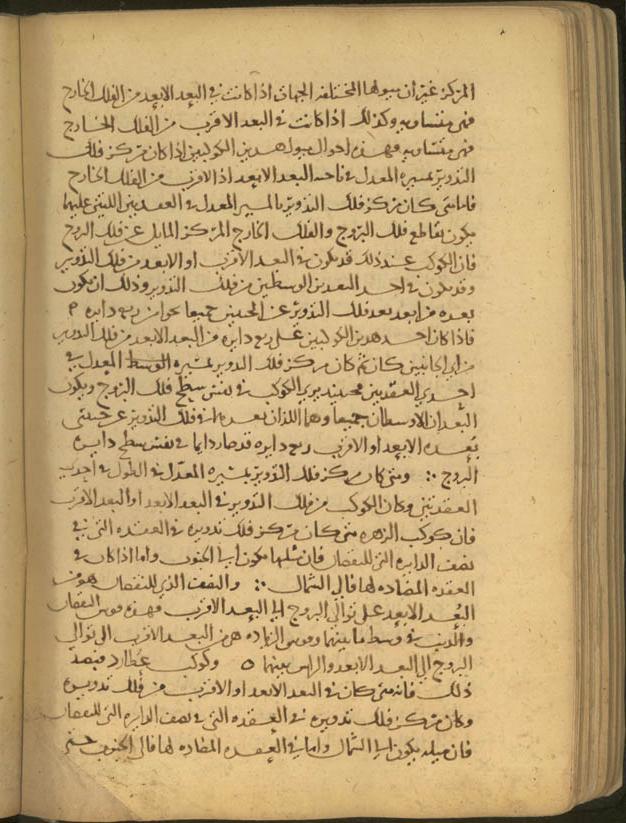 المركز غير ان ميولها المختلفة الجهات اذا كانت في البعد الابعد من الفلك الخارج
فهي متساويه وكذلك اذا كانت في البعد الاقرب من الفلك الخارج
فهي متساويه فهذه احوال ميول هذين الكوكبين اذا كان مركز فلك
التدوير بمسيره المعدل في ناحيه البعد الابعد او الاقرب من الفلك الخارج
فاما متى كان مركز فلك التدوير بالمسير المعدل في العقدتين اللتين عليهما
يكون تقاطع فلك البروج والفلك الخارج المركز المايل عن فلك البروج
فان الكوكب عند ذلك قد يكون في البعد الاقرب او الابعد من فلك التدوير
وقد يكون في احد البعدين الوسطين من فلك التدوير وذلك ان يكون
بعده من ابعد بعد فلك التدوير عن الجهتين جميعا نحو من ربع دايره
فاذا كان احد هذين الكوكبين على ربع دايره من البعد الابعد من فلك التدوير
من اي الجانبين كان ثم كان مركز فلك التدوير بمسيره الوسط المعدل في
احدي العقدتين فحينيذ يري الكوكب في نفس سطح فلك البروج ويكون
البعدان الاوسطان جميعا وهما اللذان بعدهما في فلك التدوير عن جنبتي
بعده الابعد او الاقرب ربع دايره قد صارا دايما في نفس سطح دايره
البروج ومتى كان مركز فلك التدوير بمسيره المعدل في الطول في احدي
العقدتين وكان الكوكب من فلك التدوير في البعد الابعد او البعد الاقرب
فان كوكب الزهره متى كان مركز فلك تدويره في العقده التي في
نصف الدايره التي للنقصان فان ميلها يكون الي الجنوب واما اذا كان في
العقده المضاده لها فالي الشمال والنصف الذي للنقصان هو من
البعد الابعد على توالي البروج الي البعد الاقرب فهذه قوس النقصان
والذنب في وسط ما بينهما وقوس الزياده هي من البعد الاقرب الى توالي
البروج الي البعد الابعد والراس بينهما ه وكوكب عطارد فبضد
ذلك فانه متى كان في البعد الابعد او الاقرب من فلك تدويره
وكان مركز فلك تدويره في العقده التي في نصف الدايره التي للنقصان
فان ميله يكون الي الشمال واما في العقده المضاده لها فالي الجنوب حتى